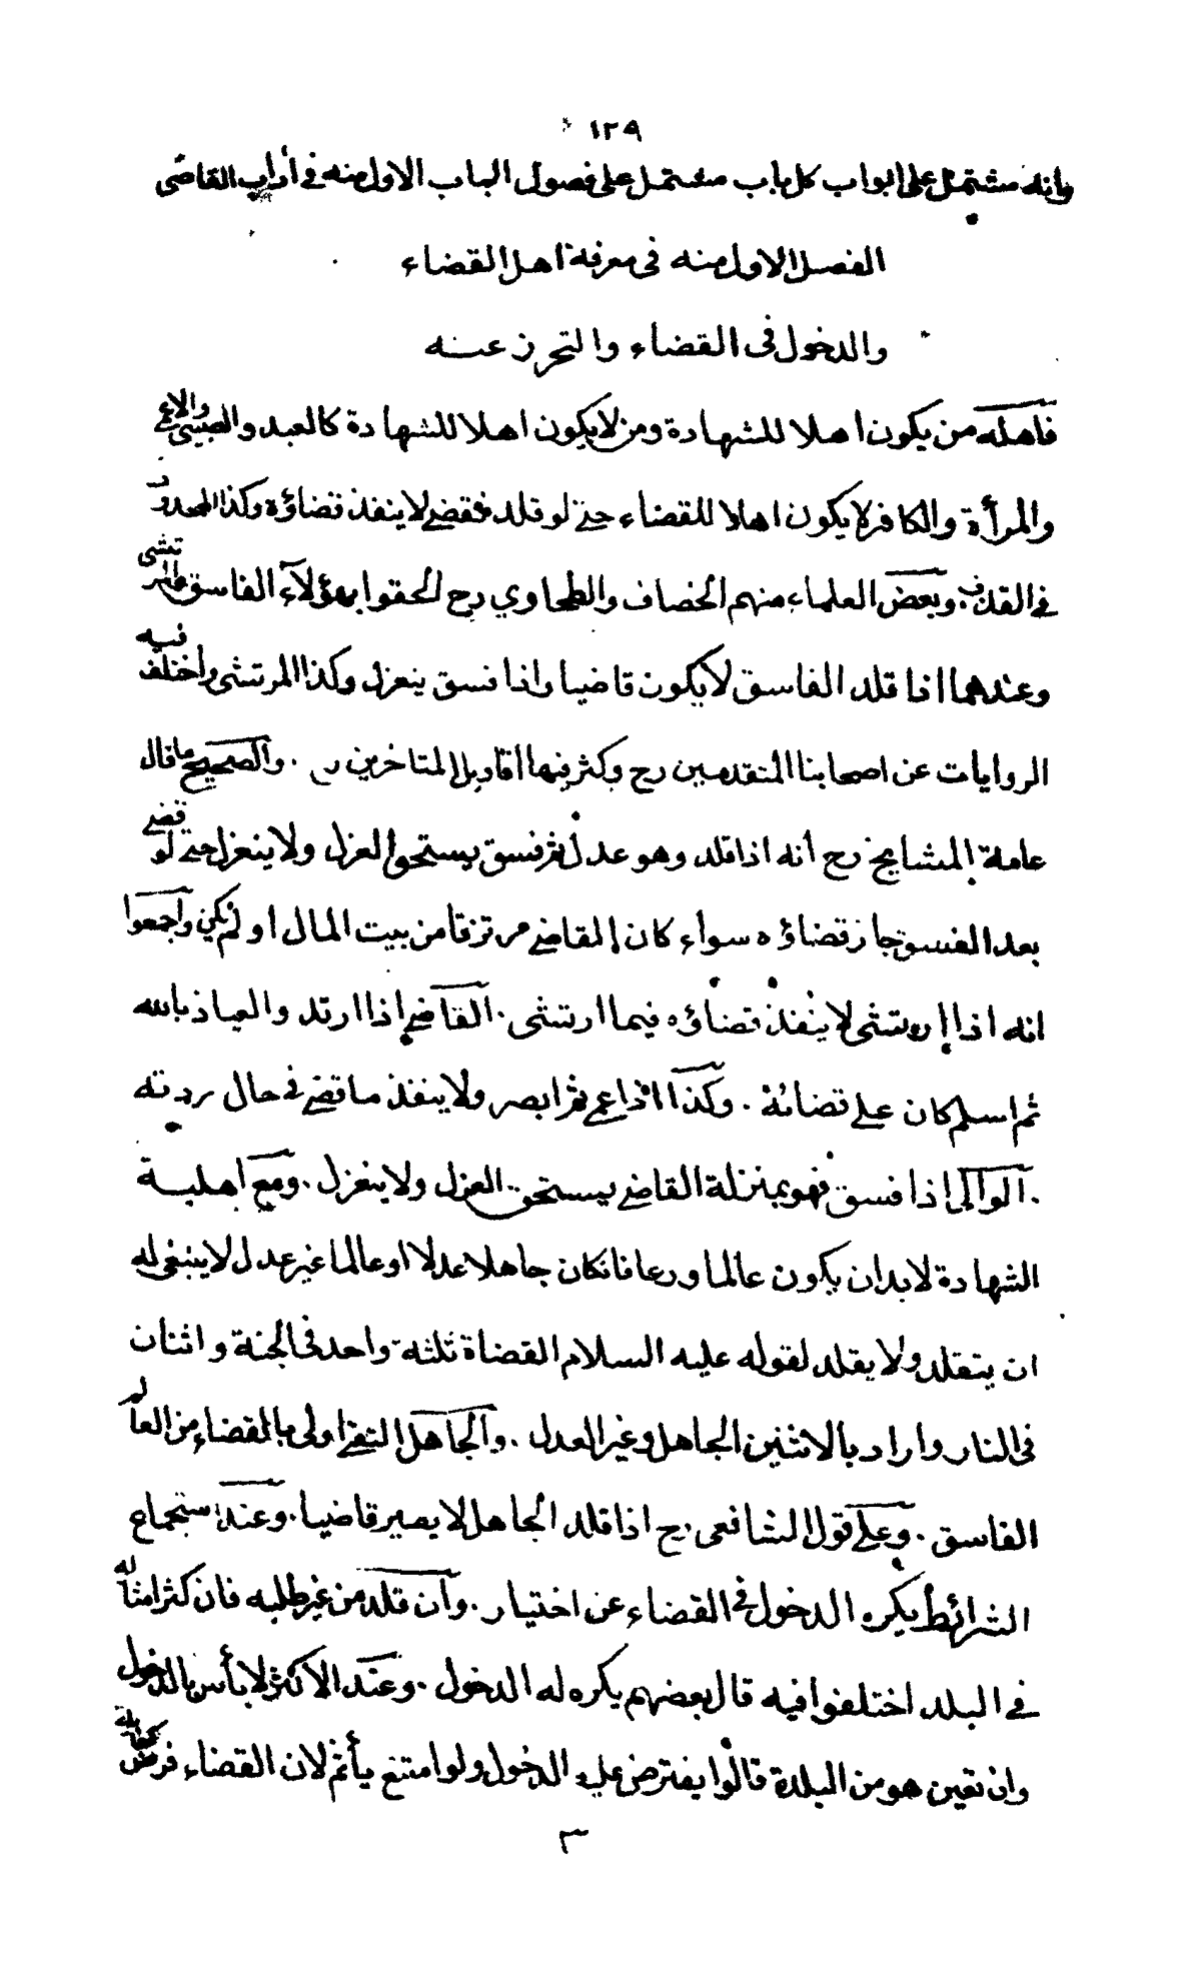 ١٢٩
وانه مشتمل على ابواب كل باب مشتمل على فصول الباب الاول منه في أداب القاضى
الفصل الاول منه فى معرفة اهل القضاء
والدخول فى القضاء والتحرز عنه
فاهله من يكون اهلا للشهادة ومن لا يكون اهلا للشهادة كالعبد والصبى والاعمى
والمرأة والكافر لا يكون اهلا للقضاء حتى لو قلد فقضى لا ينفذ قضاؤه وكذا المحدود
فى القذف. وبعض العلماء منهم الخصاف والطحاوي رح الحقوا بهؤلاء الفاسق والمرتشى
وعندهما اذا قلد الفاسق لا يكون قاضيا واذا فسق ينعزل وكذا المرتشى واختلف فيه
الروايات عن اصحابنا المتقدمين رح وكثر فيها اقاويل المتاخرين رح. والصحيح ما قال
عامة المشايخ رح أنه اذا قلد وهو عدل ثم فسق يستحق العزل ولا ينعزل حتى لو قضى
بعد الفسق جاز قضاؤه سواء كان القاضى مرتزقا من بيت المال او لم يكن واجمعوا
انه اذا ارتشى لا ينفذ قضاؤه فيما ارتشى. القاضى إذا ارتد والعياذ بالله
ثم اسلم كان على قضائه. وكذا اذا عمى ثم ابصر ولا ينفذ ما قضى فى حال ردته
. الوالى إذا فسق فهو بمنزلة القاضى يستحق العزل ولا ينعزل. ومع اهلية
الشهادة لا بد ان يكون عالما ورعا فانكان جاهلا عدلا او عالما غير عدل لا ينبغى له
ان يتقلد ولا يقلد لقوله عليه السلام القضاة ثلثة واحد فى الجنة واثنان
فى النار واراد بالاثنين الجاهل وغير العدل. والجاهل التقى اولى بالقضاء من العالم
الفاسق. وعلى قول الشافعى رح اذا قلد الجاهل لا يصير قاضيا. وعند استجماع
الشرائط يكره الدخول فى القضاء عن اختيار. وان قلد من غير طلبه فان كثر امثاله
فى البلد اختلفوا فيه قال بعضهم يكره له الدخول. وعند الاكثر لا بأس بالدخول
وان تعين هو من البلدة قالوا يفترض عليه الدخول ولو امتنع يأثم لان القضاء فرض كفاية
٣